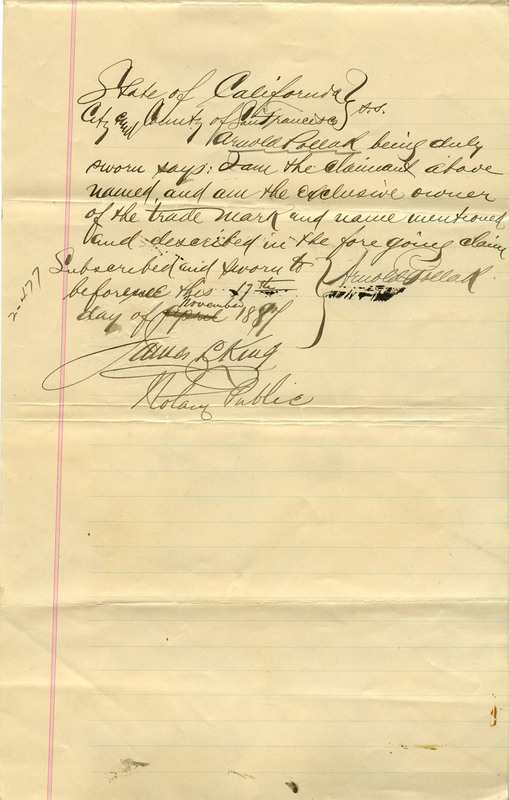 State of California
City and County of San Francisco } s.s.
Arnold Pollak being duly
sworn says: I am the claimant above
named, and am the exclusive owner
of the trade mark and name mentioned
and described in the fore going claim
Subscribed and sworn to
before me this 17th
day of April November 1887
Arnold Pollak
James L. King
Notary Public